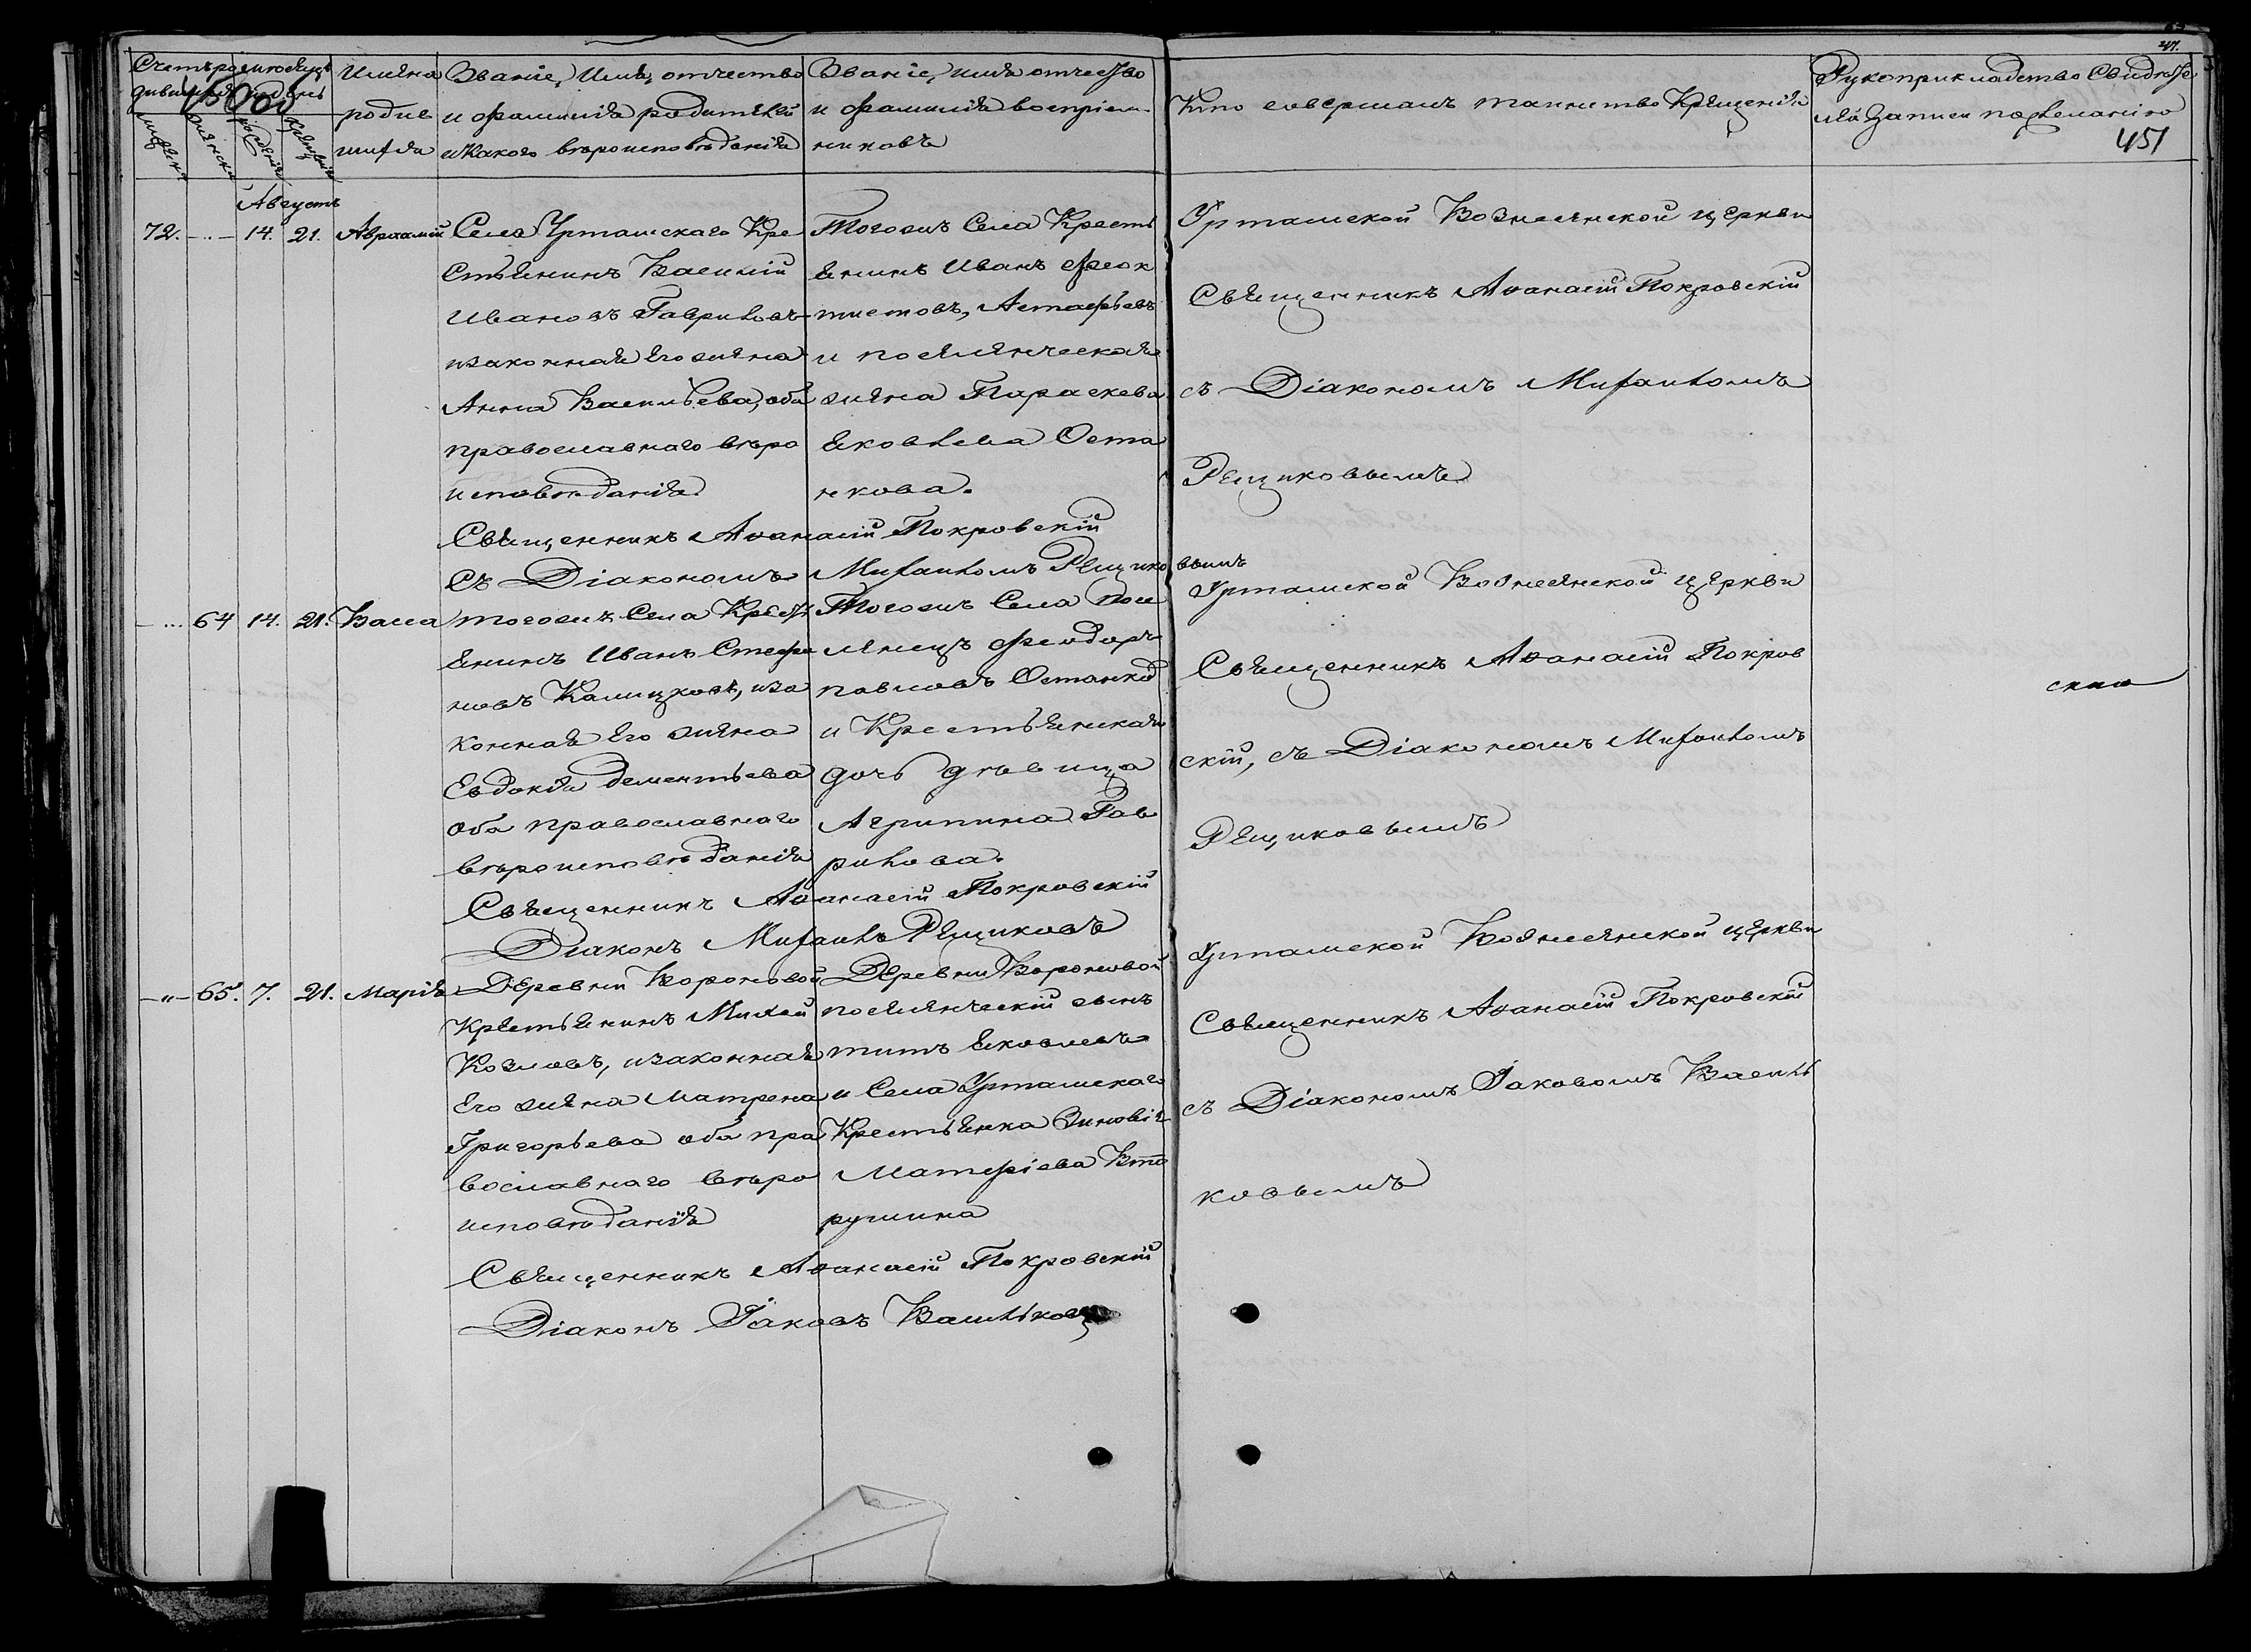 47.
451
Счетъ родившихся
Имена родив шихся
Званіе, имя, отчество и фамилія родителей и какого вѣроисповѣданія
Званіе, имя отчество и фамилія воспріем- никовъ
Кто совершалъ таинство Крещенія
Рукоприкладство Свидѣте лей записи по желанію
Августъ
72. 14. 21. Авраамій
Села Урташскаго Кре
стьянинъ Василій
Ивановъ Гавриловъ
изаконная его жена
Анна Васильева, оба
православнаго вѣро
исповѣданія
Тогожъ Села Кресть
янинъ Иванъ Феок
тистовъ, Астафьевъ
и поселянческая
жена Параскева
Яковлева Оста
нкова.
Урташской Вознесенской церкви
Священникъ Аѳанасій Покровскій
съ Діакономъ Михаиломъ
Рещиковымъ
Священникъ Аѳанасій Покровскій
Съ Діакономъ Михаиломъ Рещико вымъ
64 14. 21. Васса
тогожъ Села Крест
янинъ Иванъ Стефа
новъ Калицковъ, иза
конная его жена
Евдокія Дементьева
оба православнаго
вѣроисповѣданія
Тогожъ Села Посе
лянецъ Феодоръ
Павловъ Останков
и Крестьянская
дочь дѣвица
Агрипина Гав
рилова.
Урташской Вознесенской церкви
Священникъ Аѳанасій Покров
скій, съ Діакономъ Михаиломъ
Рещиковымъ
Священникъ Аѳанасій Покровскій
Діаконъ Михаилъ Рещиковъ
65. 7. 21. Марія
Деревни Вороновой
Крестьянинъ Михей
Козловъ, изаконная
Его жена Матрена
Григорьева оба пра
вославнаго вѣро
исповѣданія
Деревни Вороновой
поселянческій сынъ
титъ Яковлевъ
и Села Урташскаго
Крестьянка Зиновія
Матфіева Вто
рушина
Урташской Вознесенской церкви
Священникъ Аѳанасій Покровскій
съ Діакономъ Іаковомъ Василь
ковымъ
Священникъ Аѳанасій Покровскій
Діаконъ Іаковъ Васильковъ